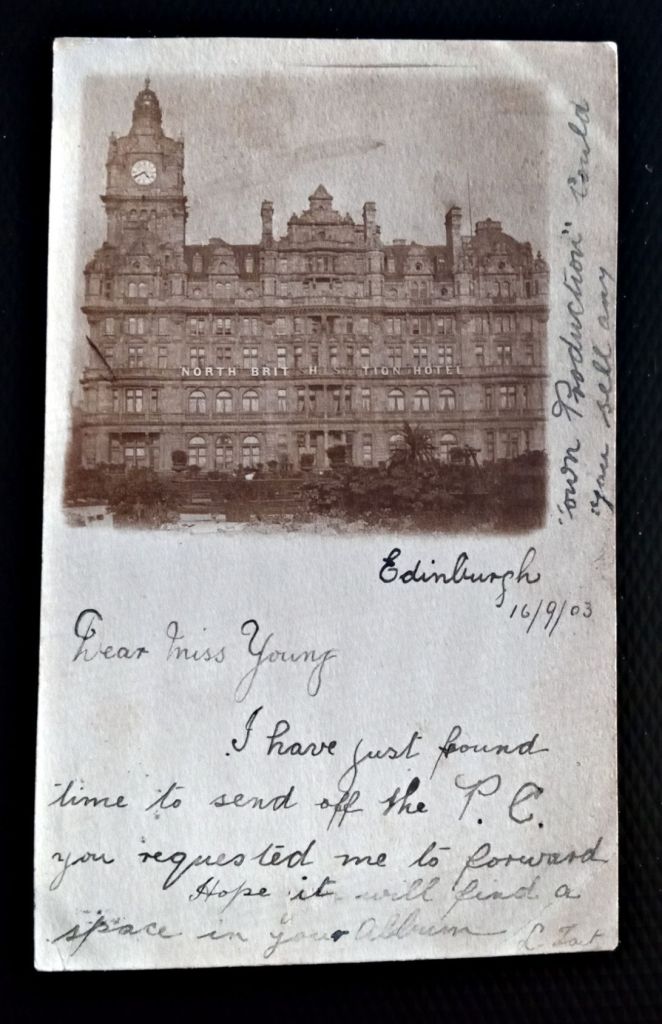 NORTH BRITISH STATION HOTEL
"own Production" Could
you sell any
Edinburgh
16/9/03
Dear Miss Young
I have just found
time to send off the P.C.
you requested me to forward
Hope it will find a
space in your Album